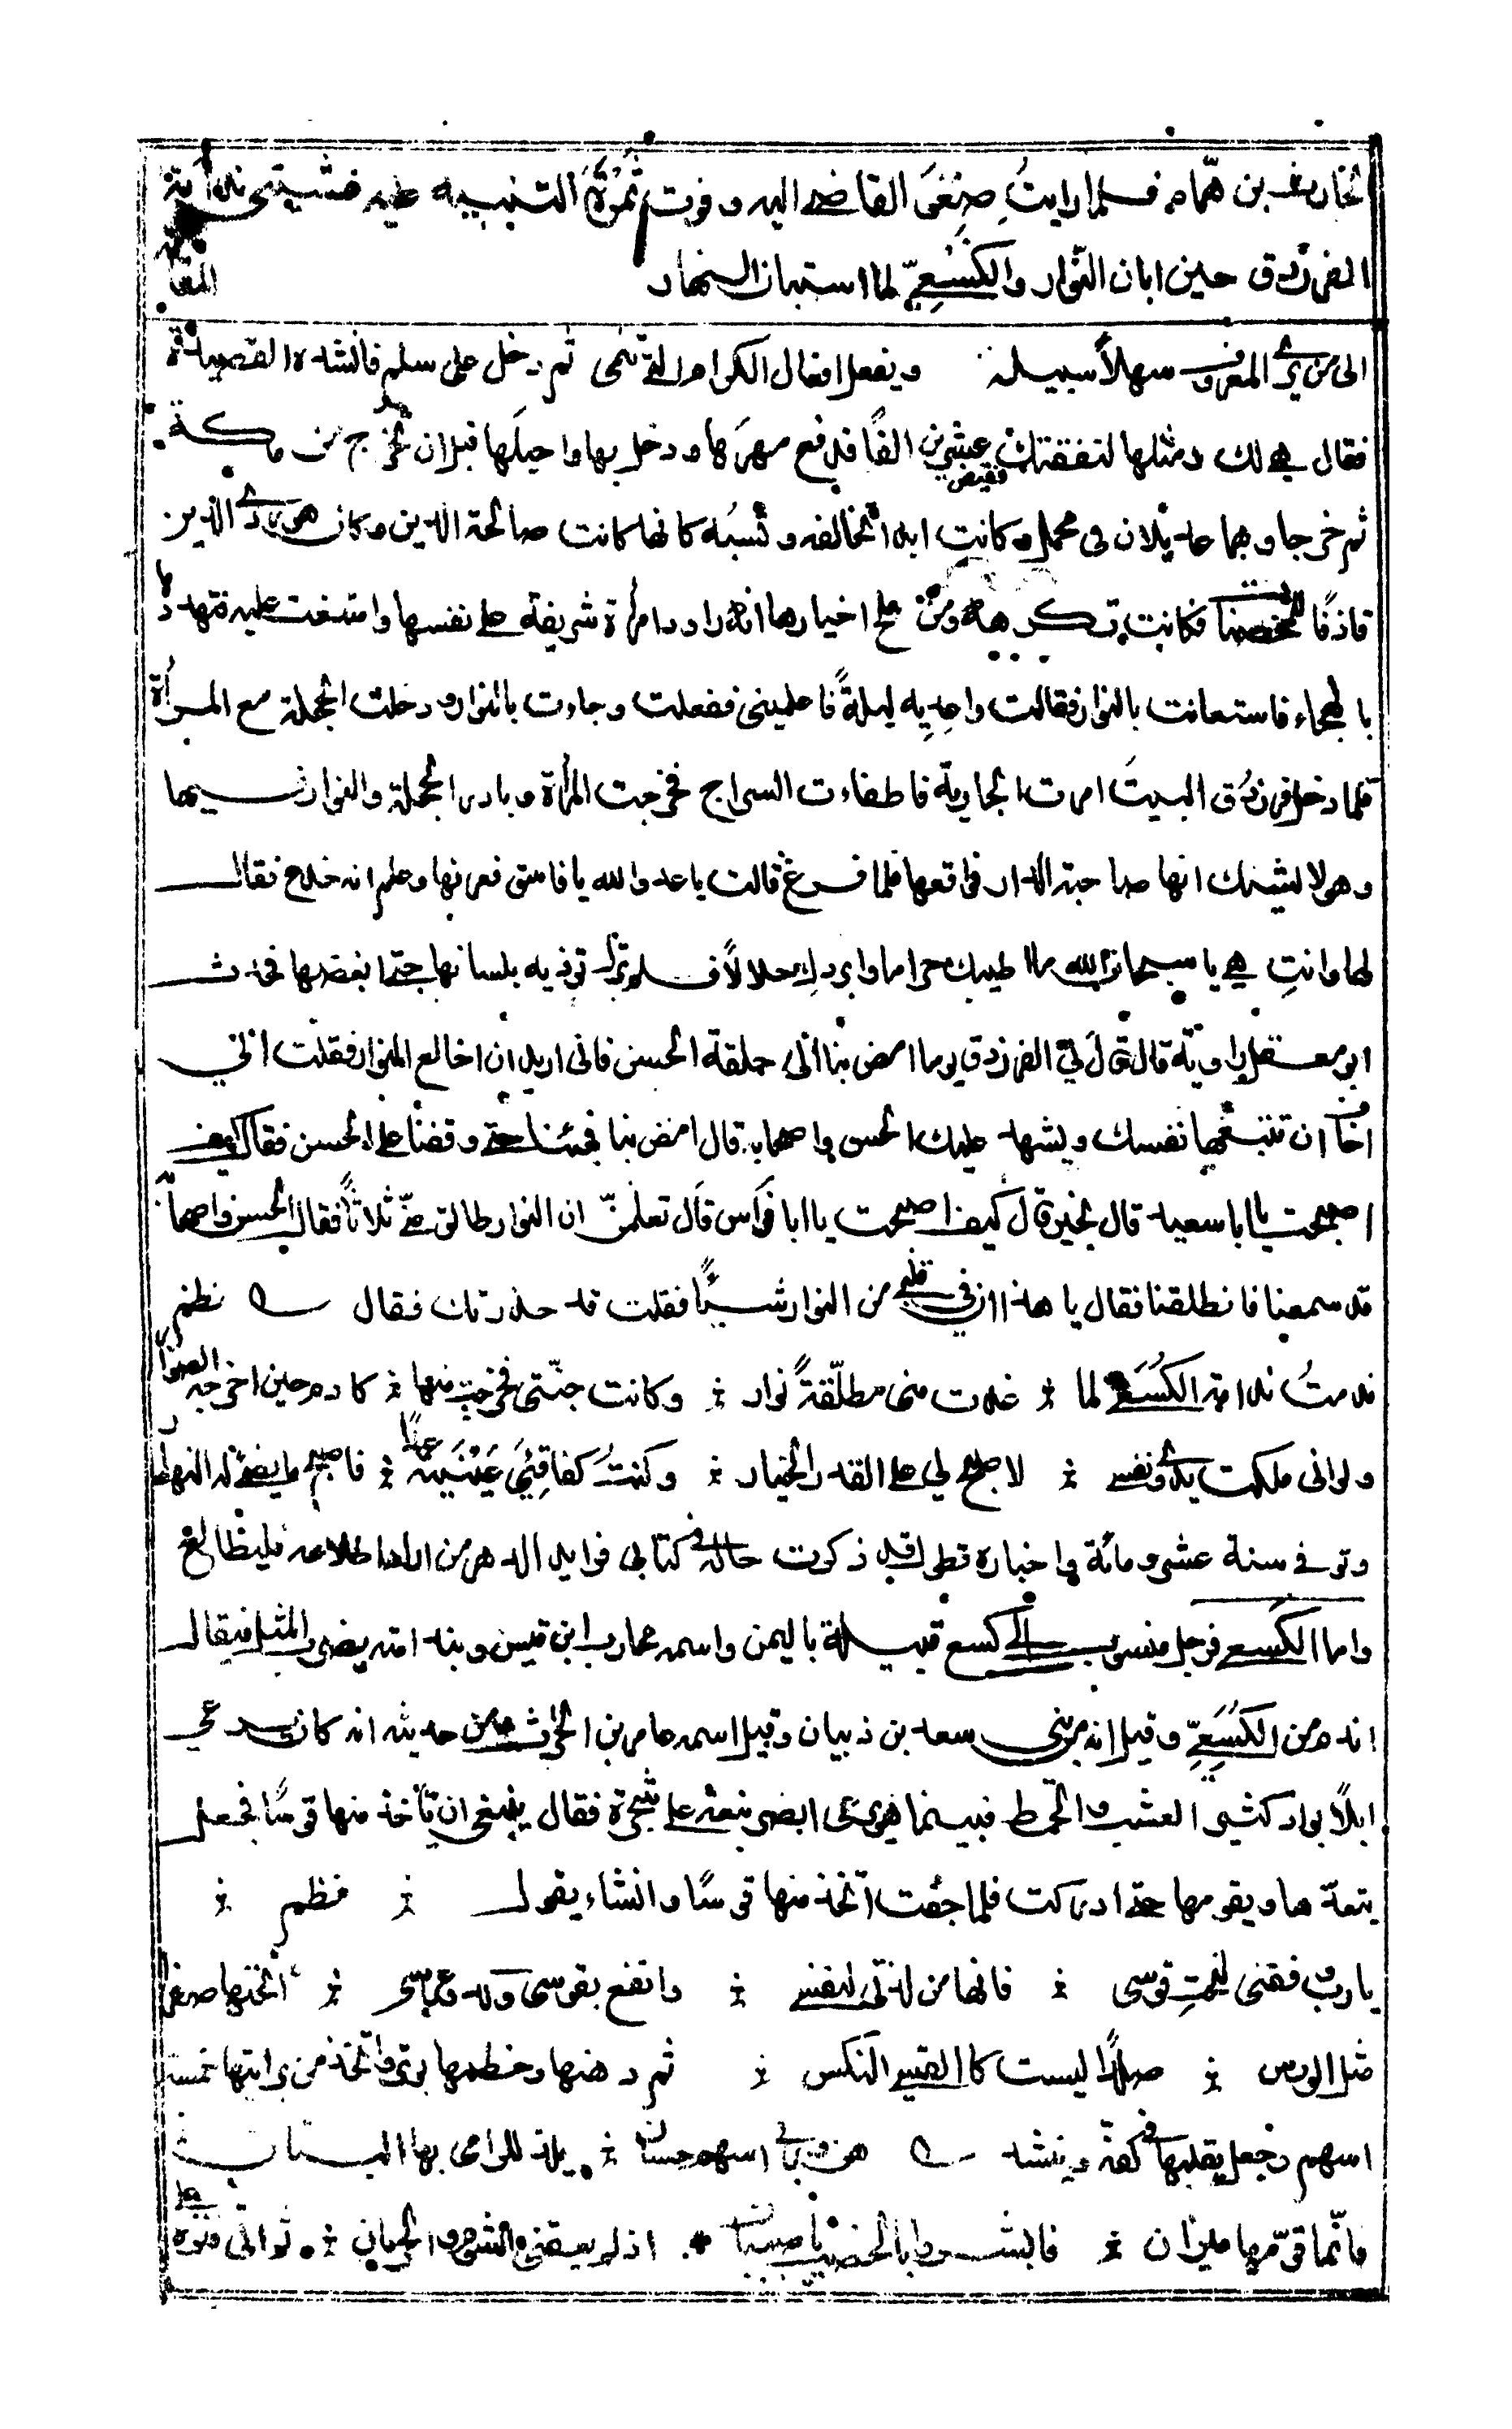 الحارث بن همّام فلما رايتُ صِغْىَ القاضى اليه وفوت ثَمَرَةَ التنبيه عليه خشيتى ندامة
الفرزدق حين ابان النَّوار والكُسَعِىّ لما استبان النهار
الى من يرى المعروف سهلاً سبيله ويفعل افعال الكرام التى تنمى ثم دخل على سلم فانشده القصيدة
فقال هى لك ومثلها لنفقتك عشرين الفًا فدفع مهرها ودخل بها واحبلها قبل ان تخرج من مكة
ثم خرجا وهما عديلان فى محمل وكانت ابدا تخالفه وتسبّه كانها كانت صالحة الدين وكان هو ردى الدين
قاذفًا للمحصنات فكانت تكرهه ومن ملح اخبارها انه راود امرأة شريفة على نفسها وامتنعت عليه فتهددها
بالهجاء فاستعانت بالنوار فقالت واعديه ليلةً فاعلمينى ففعلت وجاءت بالنوار ودخلت الحجلة مع المرأة
فلما دخل فرزدق البيتَ امرت الجارية فاطفاءت السراج فخرجت المرأة وبادر الحجلة والنوار فيها
وهو لا يشك انها صاحبة الدار فواقعها فلما فرغ قالت يا عدو الله يا فاسق فعرفها وعلم انه خدع فقال
لها وانتِ هى يا سبحان الله ما اطيبك حراما واردءك حلالاً فلم تزل توذيه بلسانها حتى ابغضها فحدث
ابو معقل راويته قال قال لى الفرزدق يوما امض بنا الى حلقة الحسن فانى اريد ان اخالع النوار فقلت انى
اخاف ان تتبعها نفسك ويشهد عليك الحسن واصحابه قال امض بنا فجئنا حتى وقفنا على الحسن فقال كيف
اصبحت يا ابا سعيد قال بخير قال كيف اصبحت يا ابا فراس قال تعلمنّ ان النوار طالق منّى ثلاثاً فقال الحسن واصحابه
قد سمعنا فانطلقنا فقال يا هذا ان فى قلبى من النوار شيئًا فقلت قد حذرتك فقال نظم
ندمتُ ندامة الكُسَعى لما ؞ غدت منى مطلّقةً نوار ؞ وكانت جنّتى فخرجت منها ؞ كادم حين اخرجه الضرار
ولو انى ملكت يدى ونفسى ؞ لاصبح لى على القدر الخيار ؞ وكنتُ كفاقِئَى عَيْنَيه عمدًا ؞ فاصبح ما يضئ له النهار
وتوفى سنة عشر ومائة واخباره قد ذكرت حاله فى كتابى فوايد الدهر من اراد اطلاعه فليطالع
واما الكسعى فرجل منسوب الى كسع قبيلة باليمن واسمه محارب ابن قيس وبندامته يضرب المثل فيقال
اندم من الكُسَعِىّ وقيل انه من بنى سعد بن ذبيان وقيل اسمه عامر بن الحارث ومن حديثه انه كان يرعى
ابلاً بواد كثير العشب والخمط فبينما هو يرعى ابصر نبعة على شجرة فقال ينبغى ان تأخذ منها قوسًا فجعل
يتعهدها ويقومها حتى ادركت فلما جفت اتخذ منها قوسًا وانشاء يقول ؞ نظم ؞
يا رب وفقنى لنحت قوسى ؞ فانها من لذتى لنفسى ؞ وانفع بقوسى ولدى وعرسى ؞ انحتها صفرا
مثل الورس ؞ صلدًا ليست كالقسى النكس ؞ ثم دهنها وخطمها بوتر واتخذ من برايتها خمسة
اسهم وجعل يقلبها فى كفه وينشد هن وربى اسهم حسان ؞ يلذ للرامى بها البنان
كانّما قوّمها ميزان ؞ فابشروا بالخصب يا صبيان ؞ ان لم يعقنى الشوم والحرمان ؞ ثم اتى قترة